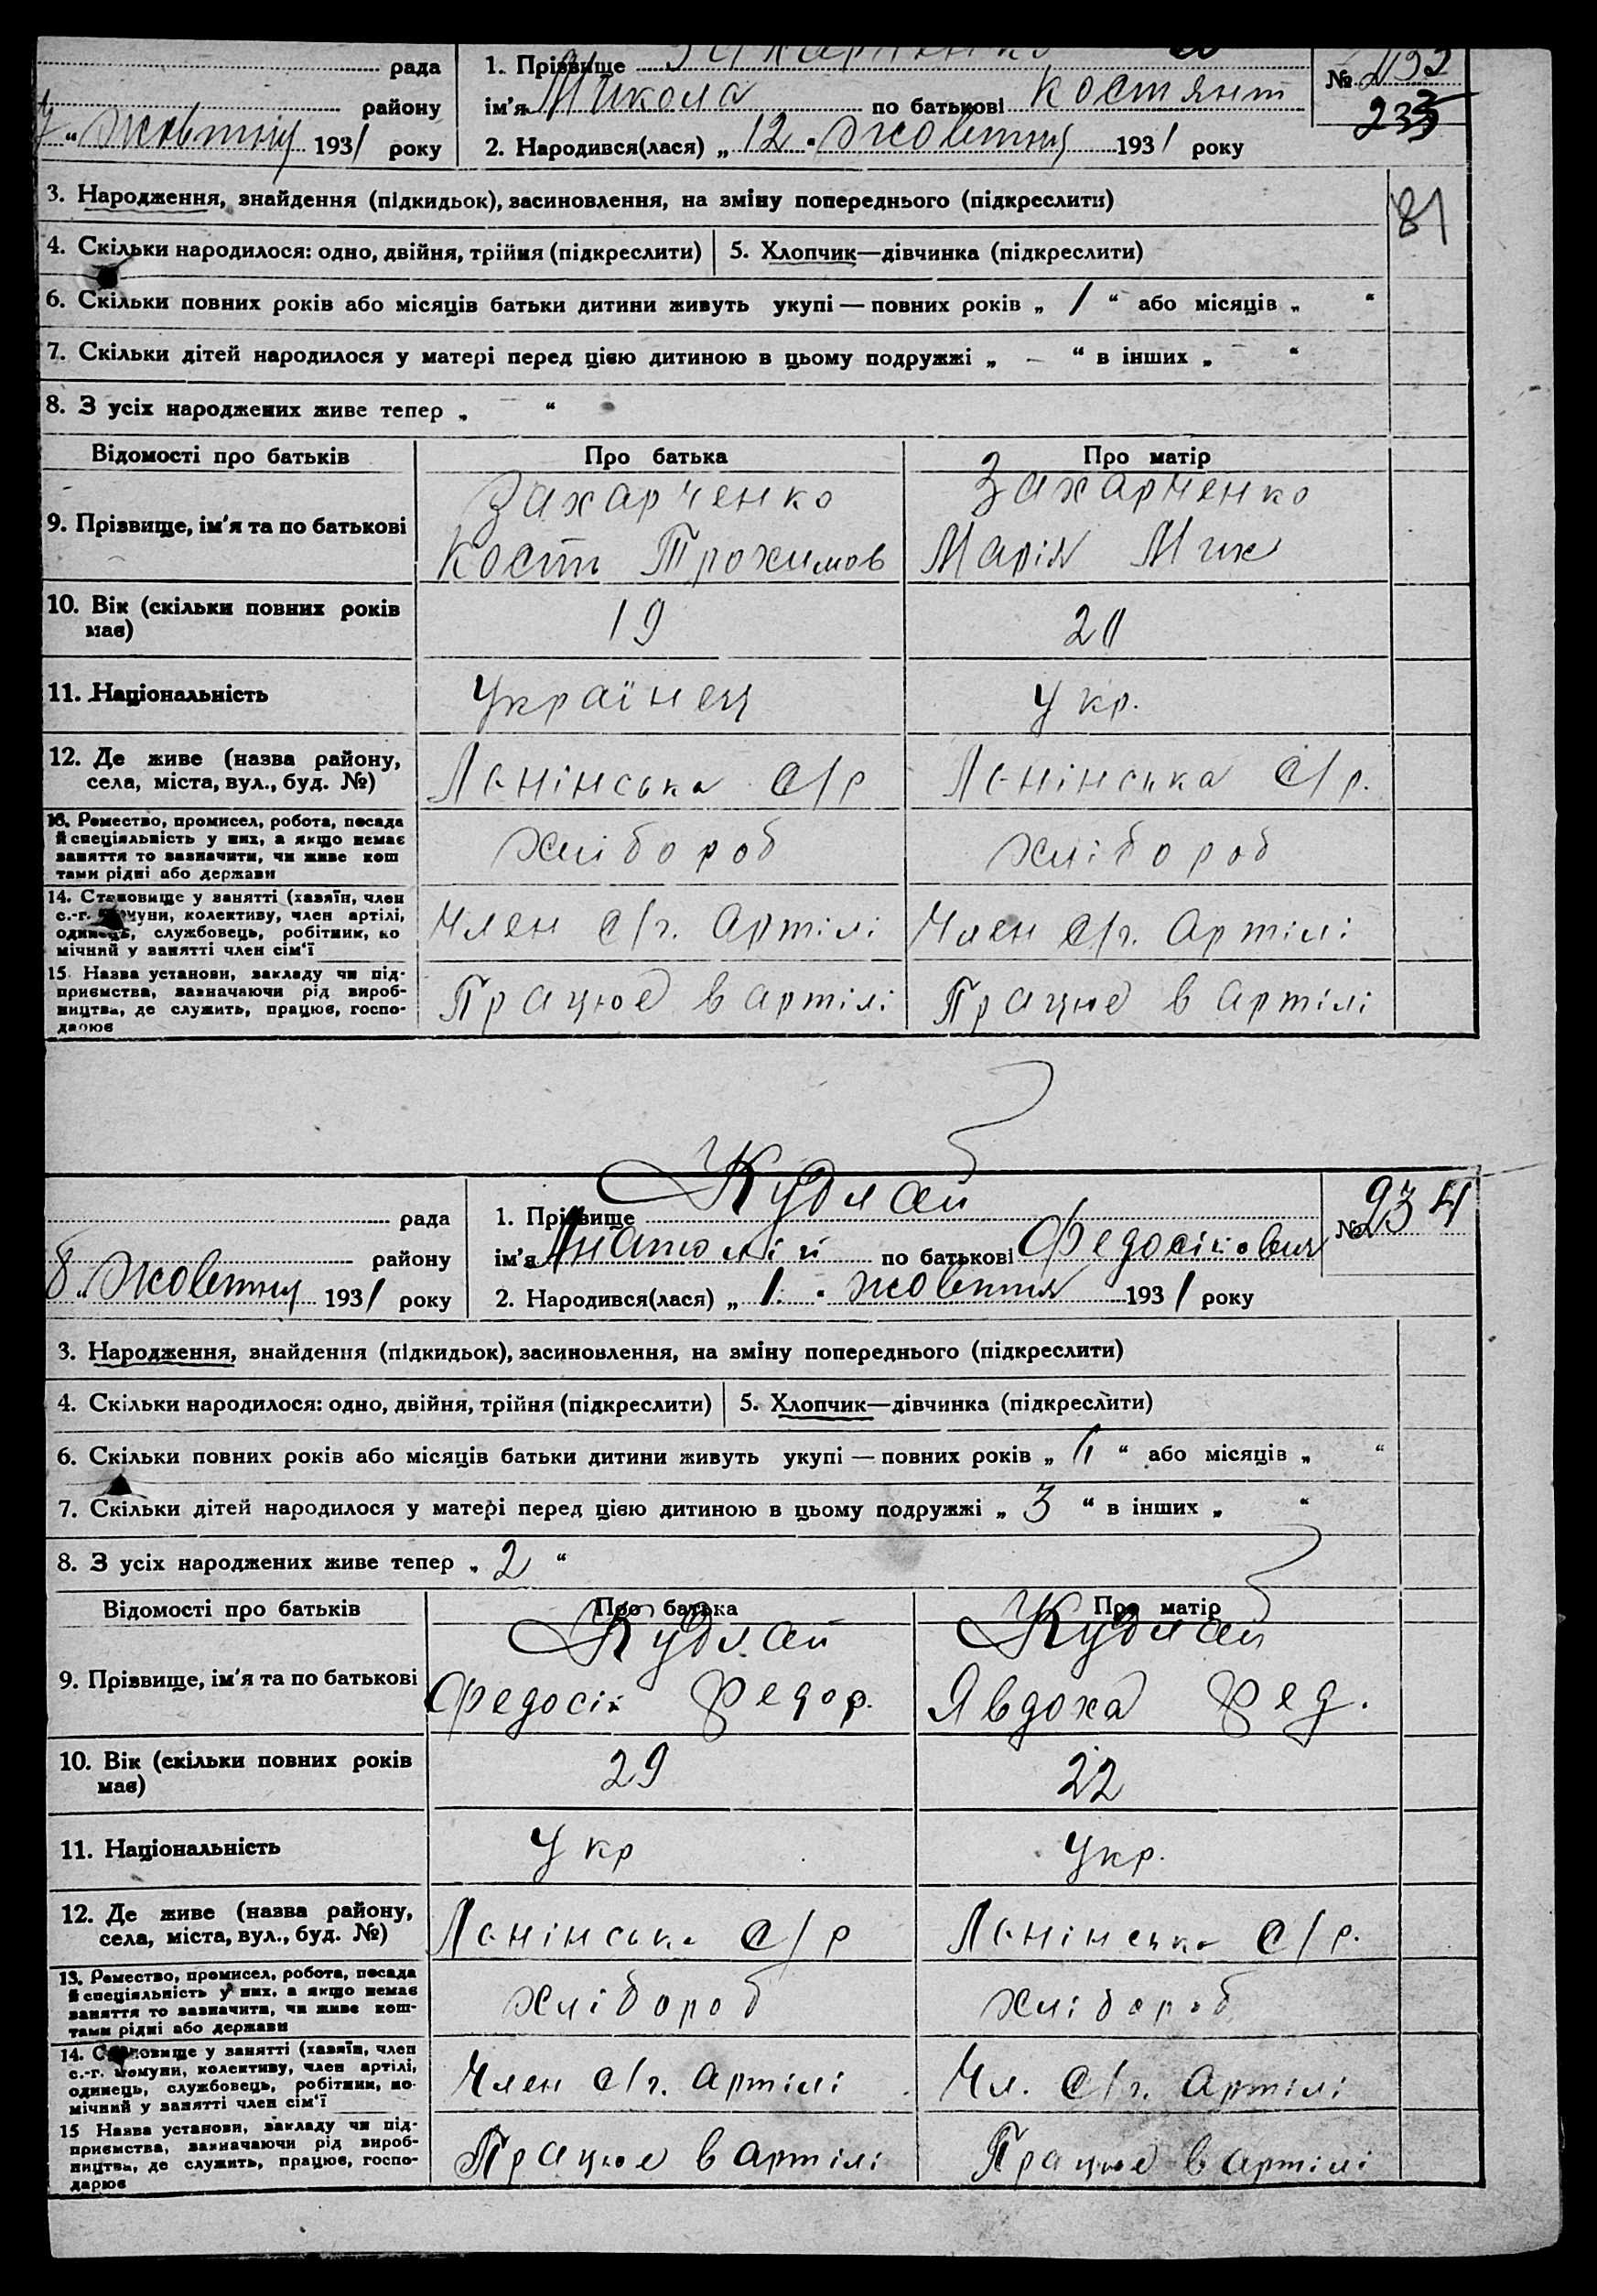 рада
1. Прізвище
№ 233
району
ім'я Микола по батькові Костянт
233
7 " Жовтня 1931 року
2. Народився(лася) „ 12 " Жовтня 1931 року
3. Народження, знайдення (підкидьок), засиновлення, на зміну попереднього (підкреслити)
81
4. Скільки народилося: одно, двійня, трійня (підкреслити)
5. Хлопчик—дівчинка (підкреслити)
6. Скільки повних років або місяців батьки дитини живуть укупі — повних років „ 1 “ або місяців „ “
7. Скільки дітей народилося у матері перед цією дитиною в цьому подружжі „ - “ в інших „ “
8. З усіх народжених живе тепер „ “
Відомості про батьків
Про батька
Про матір
9. Прізвище, ім'я та по батькові
Захарченко
Кость Трохимов
Захарченко
Марія Мик
10. Вік (скільки повних років
має)
19
20
11. Національність
Українец
Укр.
12. Де живе (назва району,
села, міста, вул., буд. №)
Ленінська С/р
Ленінська С/р.
13. Ремество, промисел, робота, посада
й спеціяльність у них, а якщо немає
заняття то зазначити, чи живе кош
тами рідні або держави
Хлібороб
Хлібороб
14. Становище у занятті (хазяїн, член
с.-г. комуни, колективу, член артілі,
одинець, службовець, робітник, по
мічний у занятті член сім'ї
Член С/г. Артілі
Член С/г. Артілі
15. Назва установи, закладу чи під-
приємства, зазначаючи рід вироб-
ництва, де служить, працює, госпо-
дарює
Працює в артілі
Працює в артілі
рада
1. Прізвище Кудлай
№ 234
району
ім'я Анатолій по батькові Федосійович
8 " Жовтня 1931 року
2. Народився(лася) „ 1 " жовтня 1931 року
3. Народження, знайдення (підкидьок), засиновлення, на зміну попереднього (підкреслити)
4. Скільки народилося: одно, двійня, трійня (підкреслити)
5. Хлопчик—дівчинка (підкреслити)
6. Скільки повних років або місяців батьки дитини живуть укупі — повних років „ “ або місяців „ “
7. Скільки дітей народилося у матері перед цією дитиною в цьому подружжі „ 3 “ в інших „ “
8. З усіх народжених живе тепер „ 2 “
Відомості про батьків
Про батька
Про матір
9. Прізвище, ім'я та по батькові
Кудлай
Федосій Федор.
Кудлай
Явдоха Фед.
10. Вік (скільки повних років
має)
29
22
11. Національність
Укр
Укр.
12. Де живе (назва району,
села, міста, вул., буд. №)
Ленінська С/р
Ленінська С/р.
13. Ремество, промисел, робота, посада
й спеціяльність у них, а якщо немає
заняття то зазначити, чи живе кош-
тами рідні або держави
Хлібороб
Хлібороб
14. Становище у занятті (хазяїн, член
с.-г. комуни, колективу, член артілі,
одинець, службовець, робітник, по-
мічний у занятті член сім'ї
Член С/г. Артілі
Чл. С/г. Артілі
15 Назва установи, закладу чи під-
приємства, зазначаючи рід вироб-
ництва, де служить, працює, госпо-
дарює
Працює в артілі
Працює в артілі